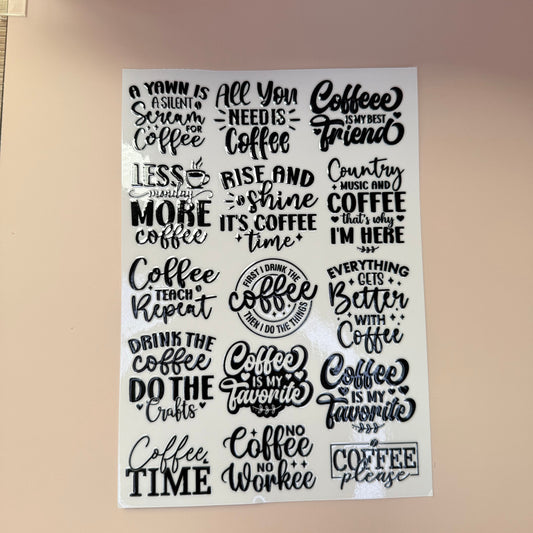 A YAWN IS
A SILENT
Scream
FOR
Coffee
All You
NEED IS
Coffee
Coffeee
IS MY BEST
friend
LESS
monday
MORE
coffee
RISE AND
shine
IT'S COFFEE
time
Country
MUSIC AND
COFFEE
that's why
I'M HERE
Coffee
TEACH
Repeat
FIRST I DRINK THE
coffee
THEN I DO THE THINGS
EVERYTHING
GETS
Better
WITH
Coffee
DRINK THE
coffee
DO THE
Crafts
Coffee
IS MY
favorite
Coffee
IS MY
favorite
Coffee
TIME
NO
Coffee
NO
Workee
COFFEE
please